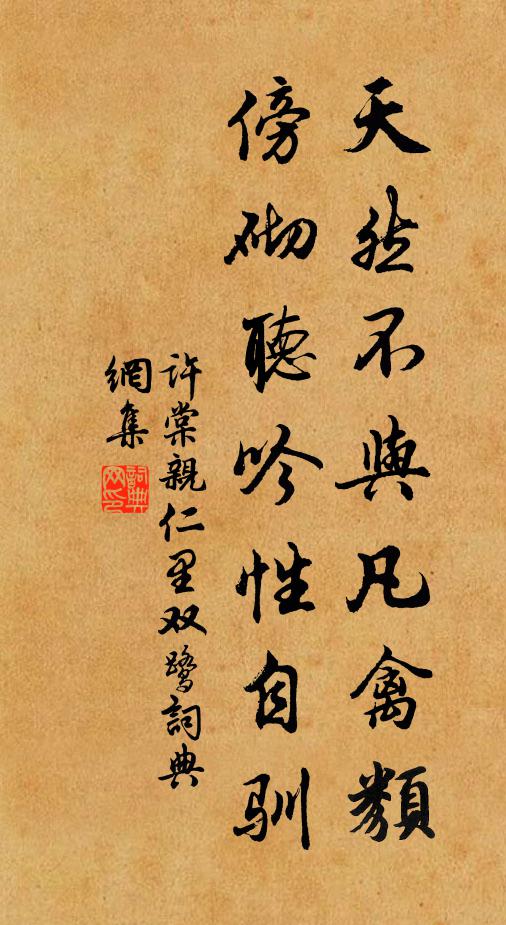 天然不與凡禽類
傍砌聽吟性自馴
許棠親仁里双鷺詞典
網集
詞典
网印